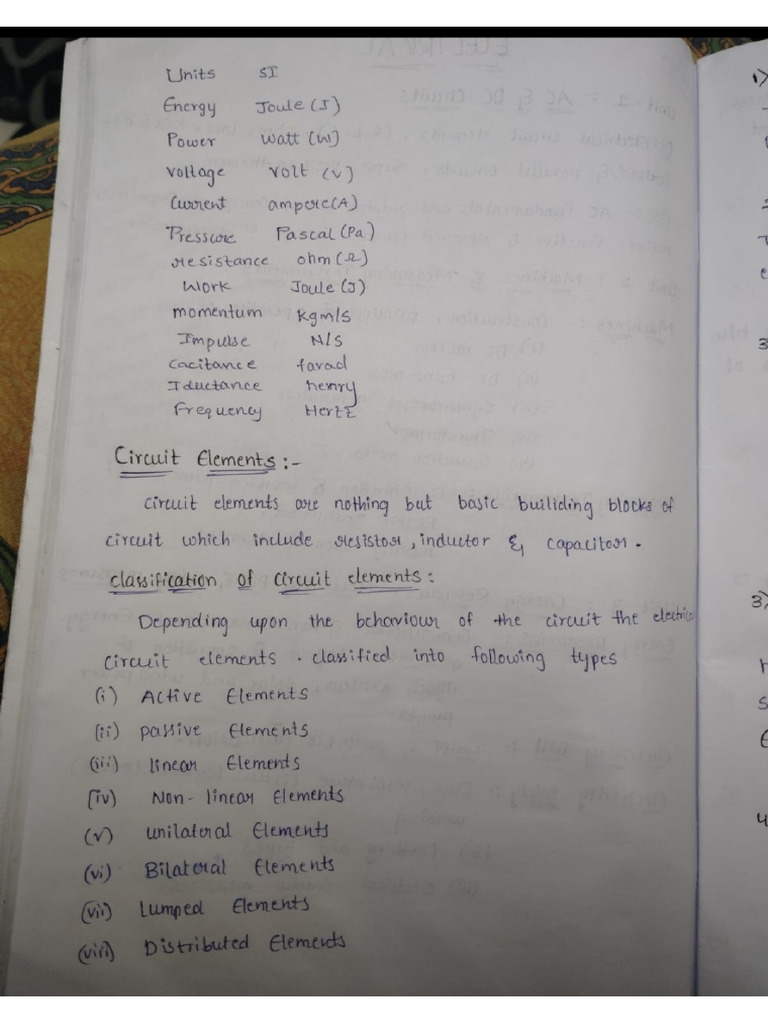 Units SI
Energy Joule (J)
Power Watt (W)
Voltage Volt (V)
Current ampere (A)
Pressure Pascal (Pa)
resistance ohm (Ω)
Work Joule (J)
momentum kgm/s
Impulse N/s
Cacitance farad
Iductance henry
Frequency Hertz
Circuit Elements :-
Circuit elements are nothing but basic builiding blocks of
circuit which include resistor, inductor & capacitor.
classification of circuit elements :
Depending upon the behaviour of the circuit the electric
circuit elements . classified into following types
(i) Active Elements
(ii) passive Elements
(iii) linear Elements
(iv) Non-linear Elements
(v) unilateral Elements
(vi) Bilateral Elements
(vii) Lumped Elements
(viii) Distributed Elements
1)
3
3)
4